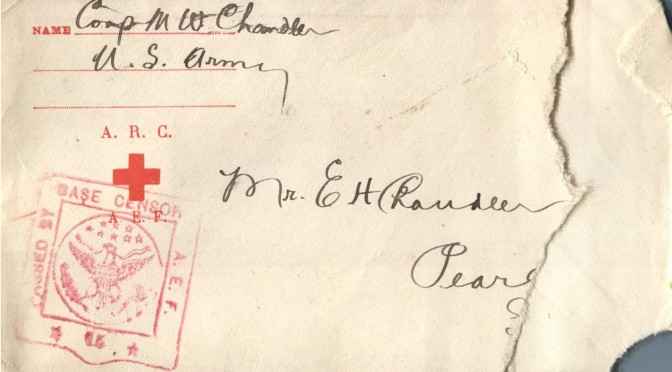 NAME Corp M W Chandler
U. S. Army
A. R. C.
A. E. F.
PASSED BY
BASE CENSOR
A. E. F.
Mr. E H Chandler
Pearl